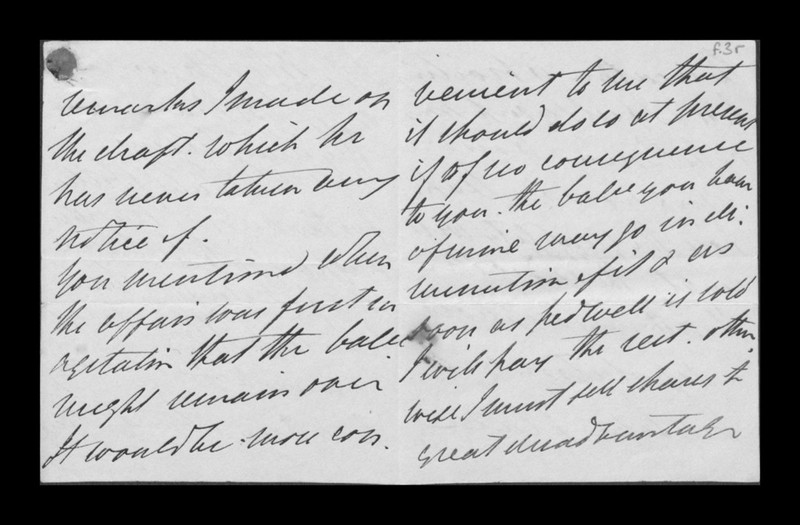 remarks I made on
the draft. which he
has never taken any
notice of.
You mentioned when
the affair was first in
agitation that the balce
might remain over
It would be more con.
f.3r
venient to me that
it should do so at present
if of no consequence
to you. the balce you have
of mine may go in di.
minution of it & as
soon as Pedwell is sold
I will pay the rest. other
wise I must sell shares to
great disadvantage